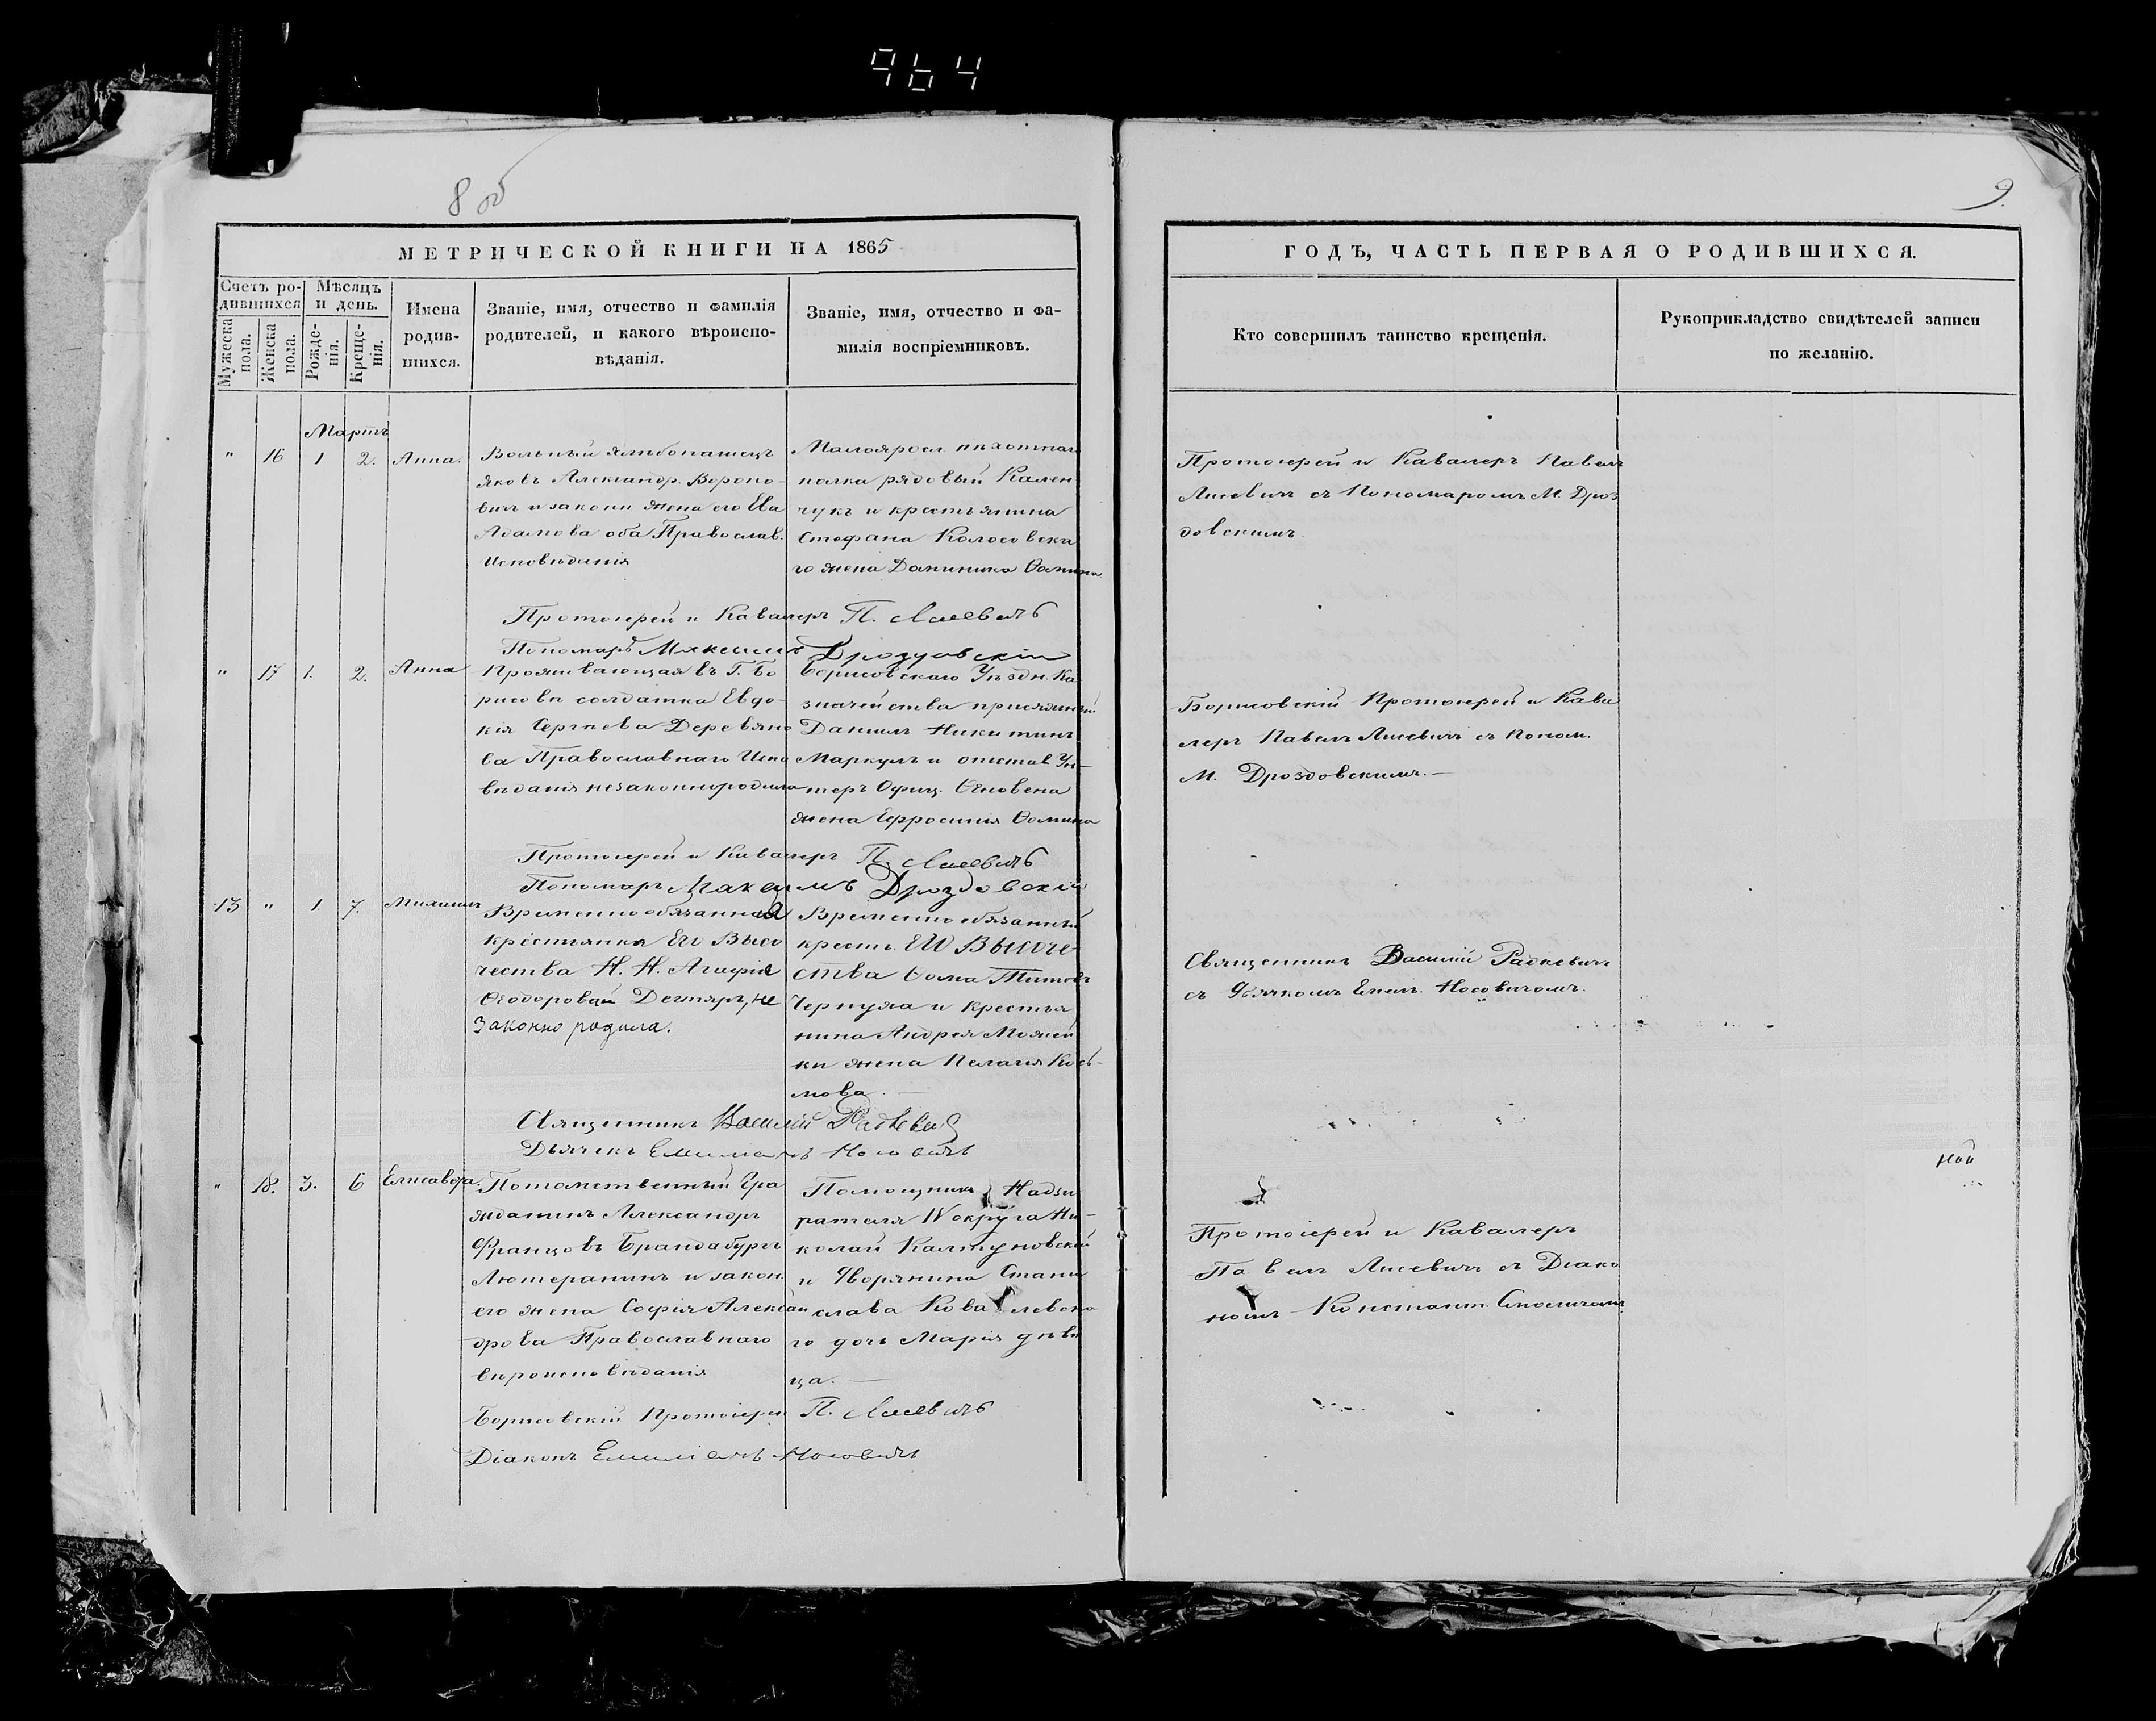 964
8 об
9.
МЕТРИЧЕСКОЙ КНИГИ НА 1865
ГОДЪ, ЧАСТЬ ПЕРВАЯ О РОДИВШИХСЯ.
Счетъ ро-
дившихся
Мѣсяцъ
и день.
Мужеска
пола.
Женска
пола.
Рожде-
нія.
Креще-
нія.
Имена
родив-
шихся.
Званіе, имя, отчество и фамилія
родителей, и какого вѣроиспо-
вѣданія.
Званіе, имя, отчество и фа-
милія воспріемниковъ.
Кто совершилъ таинство крещенія.
Рукоприкладство свидѣтелей записи
по желанію.
Мартъ
" 16 1 2. Анна.
Вольный хлѣбопашецъ
Яковъ Александр. Вороно-
вичъ и законн жена его Ева
Адамова оба Православ.
Исповѣданія
Малояросл пѣхотнаго
полка рядовый Камен
чукъ и крестьянина
Стефана Колосовска
го жена Доминика Ѳомина
Протоіерей и Кавалеръ Павелъ
Лисевичъ съ Пономаромъ М. Дроз
довскимъ
Протоіерей и Кавалеръ П. Лисевичъ
Пономарь Максимъ Дроздовскій
" 17 1. 2. Анна
Проживающая въ Г. Бо
рисовѣ солдатка Евдо-
кія Сергѣева Деревяно
ва Православнаго Испо
вѣданія незаконнородила
Борисовскаго Уѣздн. Ка
значейства присяжный
Даніилъ Никитинъ
Маркулъ и отстав Ун-
теръ Офиц.
жена Ефросинія Ѳомина
Борисовскій Протоіерей и Кава
леръ Павелъ Лисевичъ съ Поном.
М. Дроздовскимъ.—
Протоіерей и Кавалеръ П. Лисевичъ
Пономарь Максимъ Дроздовскій
13 " 1. 7. Михаилъ
Временнообязанная
крестьянка Его Высо
чества Н. Н. Агафія
Ѳеодорова Дегтяръ, не
законно родила.
Временнообязанный
крест. ЕГО ВЫСОЧЕ-
СТВА Ѳома Титовъ
Чернуха и крестья
нина АндреяМожей
ки жена Пелагія Кось-
мова.—
Священникъ Василій Радкевичъ
съ Дьячкомъ Емел. Носовичомъ.
Священникъ Василій Радкевичъ
Дьячекъ Емиліанъ Носовичъ
ной
" 18. 3. 6 Елисавета.
Потомственный Гра
жданинъ Александръ
Францовъ Брандабургъ
Лютеранинъ и закон.
его жена Софія Алексан
дрова Православнаго
вѣроисповѣданія
Помощникъ Надзи
рателя IV округа Ни-
колай Калтуновскій
и Дворянина Стани
слава Ковалевска
го дочь Марія дѣви
ца.—
Протоіерей и Кавалеръ
Павелъ Лисевичъ съ Діако
номъ Констант.
Борисовскій Протоіерей П. Лисевичъ
Діаконъ Емиліанъ Носовичъ